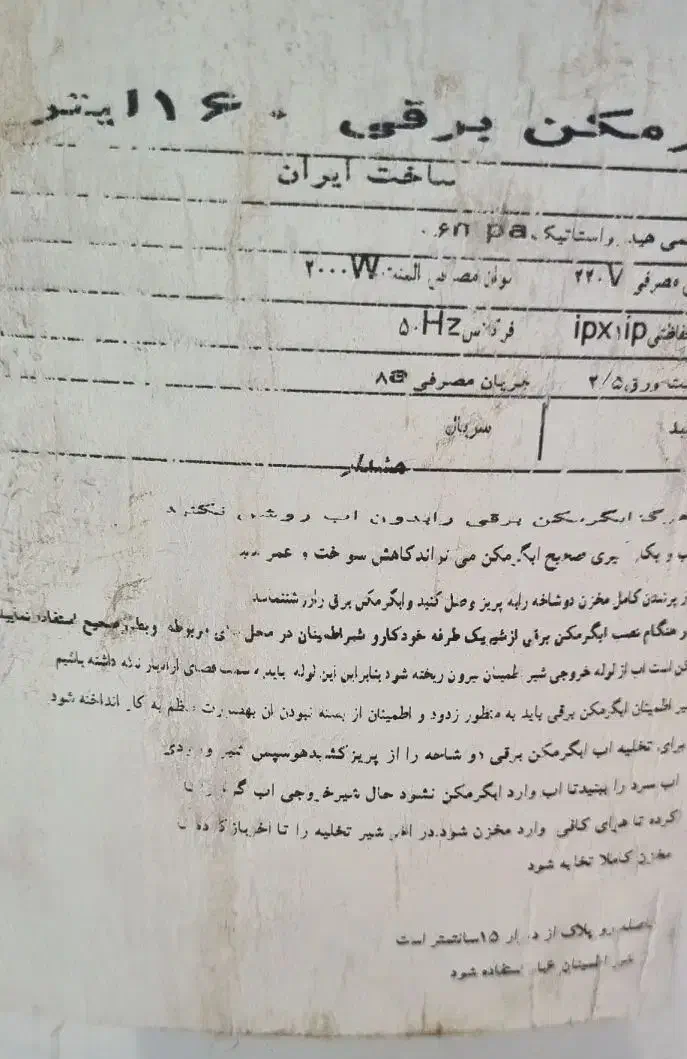 رمکن برقی ۱۶۰لیتر
ساخت ایران
هیدرواستاتیک ۰۶n pa
مصرفی ۲۲۰V توان مصرفی المنت ۲۰۰۰W
ipx۱ip فرکانس ۵۰Hz
ورق ۲/۵ جریان مصرفی ۸a
سریال
هشدار
هرگز ابگرمکن برقی رابدون اب روشن نکنید
صحیح ابگرمکن می تواندکاهش سوخت و عمر
کامل مخزن دوشاخه رابه پریز وصل کنید وابگرمکن برقی را
هنگام نصب ابگرمکن برقی ازشیر یک طرفه خودکارو شیراطمینان در محل های مربوطه وبطور صحیح استفاده نمایید
است اب از لوله خروجی شیر اطمینان بیرون ریخته شود بنابراین این لوله باید به سمت فضای ازاد داشته باشیم
اطمینان ابگرمکن برقی باید به منظور زدود و اطمینان از بسته نبودن ان بهصورت منظم به کار انداخته شود
برای تخلیه اب ابگرمکن برقی دو شاخه را از پریزکشیدهوسپس شیر ورودی
اب سرد را ببنیدتا اب وارد ابگرمکن نشود حال شیرخروجی اب گرم را
کرده تا هوای کافی وارد مخزن شود.در اخر شیر تخلیه را تا اخربازکرده تا
مخزن کاملا تخلیه شود
فاصله رو پلاک از دیوار ۱۵سانتیمتر است
اطمینان استفاده شود